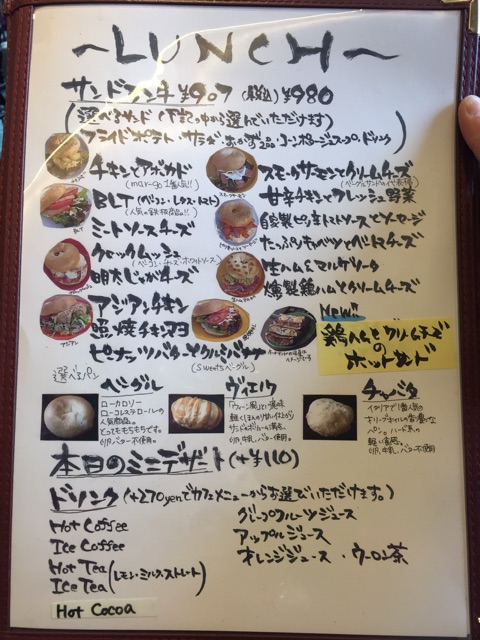 ~LUNCH~
サンドランチ ¥907 (税込) ¥980
(選べるサンド (下記の中から選んでいただけます)
フライドポテト・サラダ・おかず2品・コーンポタージュスープ・ドリンク)
チキンとアボカド
(mar-go 1番人気!!)
BLT (ベーコン・レタス・トマト)
(人気の鉄板商品!!)
ミートソースチーズ
クロックムッシュ
(ベーコン・チーズ・ホワイトソース)
明太じゃがチーズ
アジアンチキン
照焼チキンマヨ
ピーナッツバターとクルミバナナ
(sweetsベーグル)
スモークサーモンとクリームチーズ
(ベーグルサンドの代表格)
甘辛チキンとフレッシュ野菜
自家製ピリ辛トマトソースとソーセージ
たっぷりキャベツとベーコンチーズ
生ハムとマルゲリータ
燻製鶏ハムとクリームチーズ
New!!
鶏ハムとクリームチーズ
の
ホットサンド
選べるパン
ベーグル
ローカロリー
ローコレステロールの
人気商品。
とってももちもちです。
卵、バター不使用。
ヴェック
チャバタ
イタリアで1番人気の
パン。ハード系の
軽い食感。
卵、牛乳、バター不使用
本日のミニデザート(+¥110)
ドリンク (+270yenでカフェメニューからお選びいただけます。)
Hot Coffee
Ice Coffee
Hot Tea
Ice Tea (レモン・ミルク・ストレート)
Hot Cocoa
グレープフルーツジュース
アップルジュース
オレンジジュース ・ウーロン茶